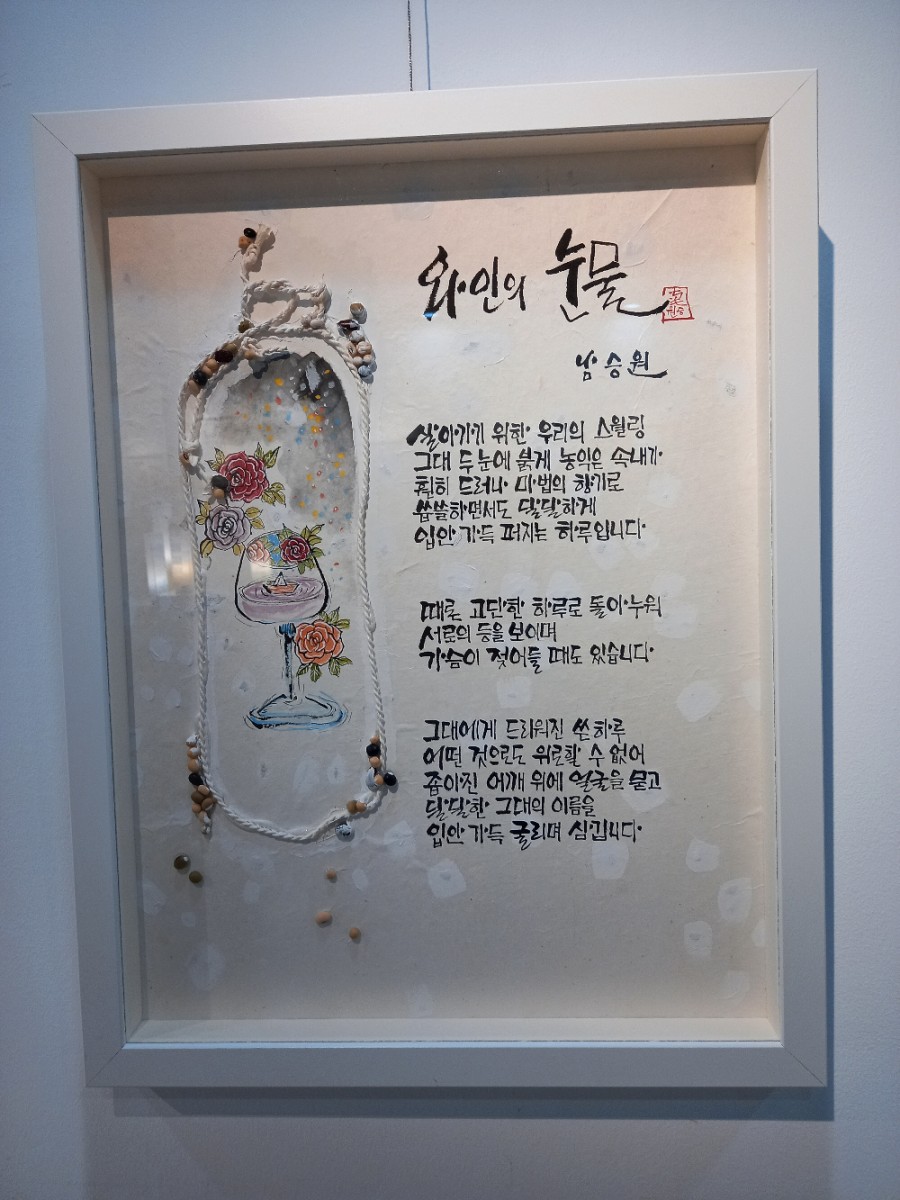 와인의 눈물
남승원
살아가기 위한 우리의 스월링
그대 두 눈에 붉게 농익은 속내가
훤히 드러나 마법의 향기로
씁쓸하면서도 달달하게
입안 가득 퍼지는 하루입니다
때론 고단한 하루로 돌아누워
서로의 등을 보이며
가슴이 젖어들 때도 있습니다
그대에게 드리워진 쓴 하루
어떤 것으로도 위로할 수 없어
좁아진 어깨 위에 얼굴을 묻고
달달한 그대의 이름을
입안 가득 굴리며 삼킵니다